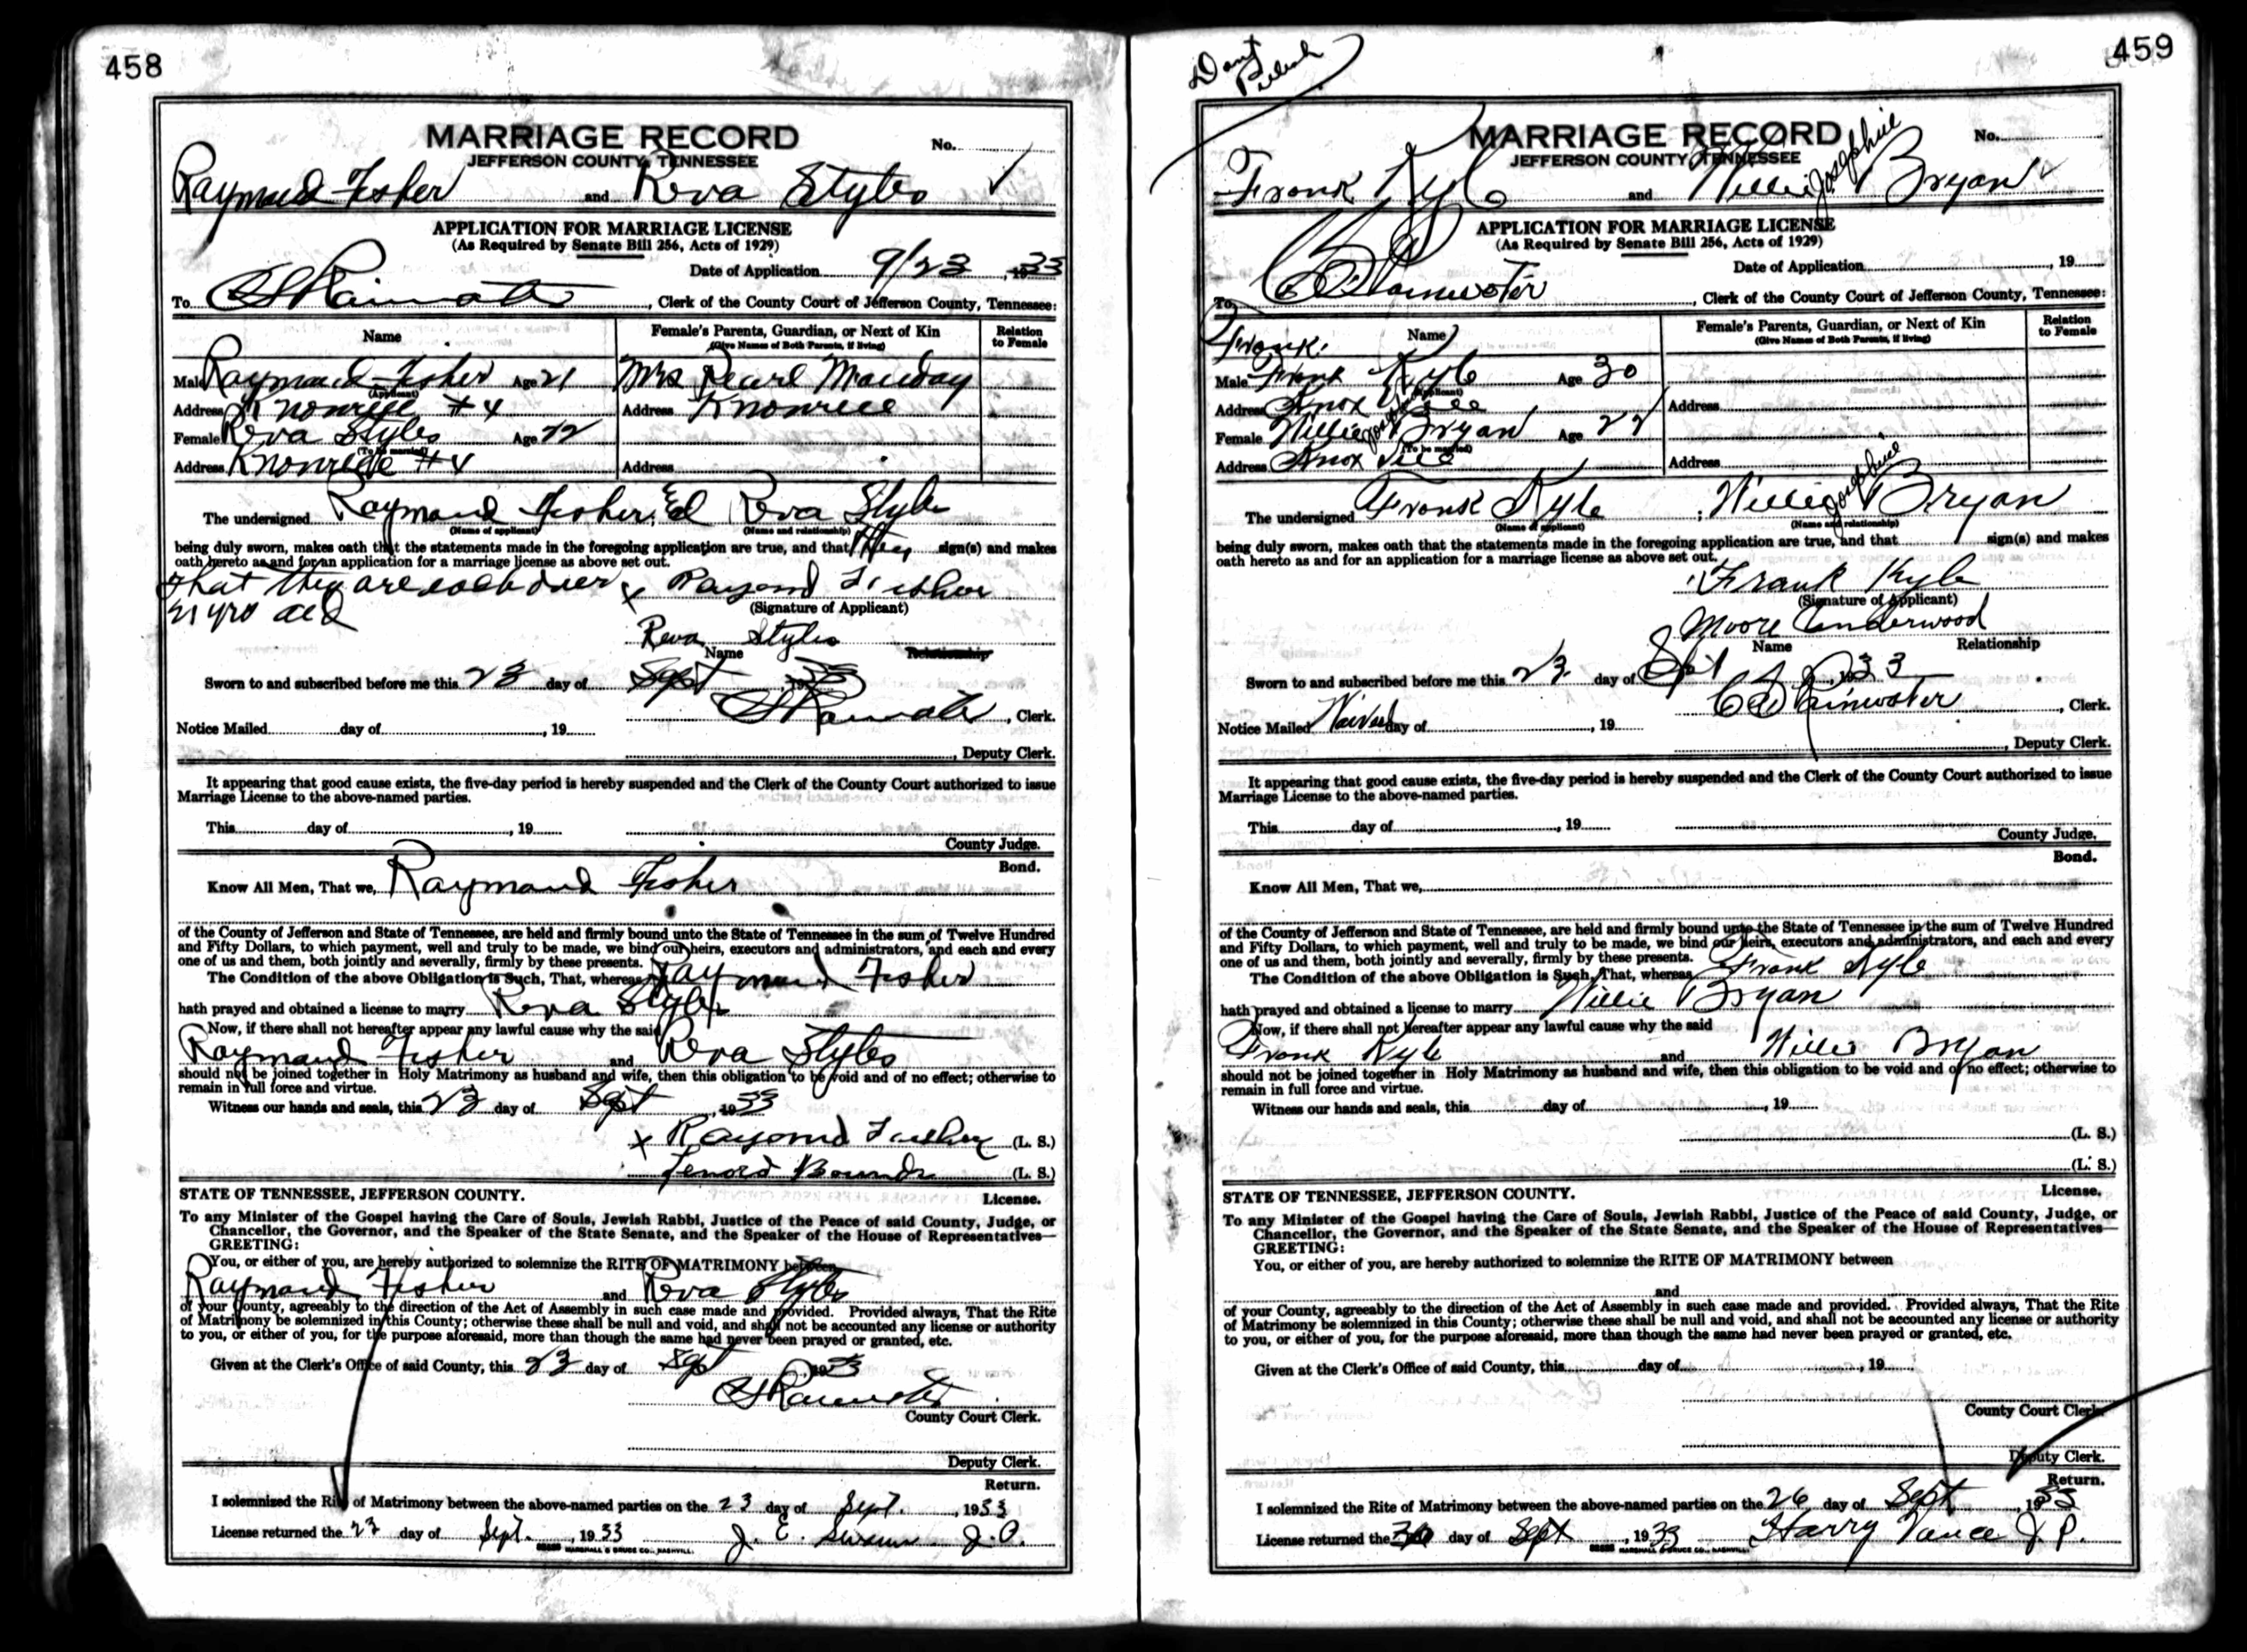 458
MARRIAGE RECORD
No.
JEFFERSON COUNTY, TENNESSEE
Raymond Fisher and Reva Styles
APPLICATION FOR MARRIAGE LICENSE
(As Required by Senate Bill 256, Acts of 1929)
Date of Application 9/23, 1933
To, Clerk of the County Court of Jefferson County, Tennessee:
Name Female's Parents, Guardian, or Next of Kin Relation
(Give Names of Both Parents, if living) to Female
Male Raymond Fisher Age 21 Mrs Pearl
(Applicant)
Address #4 Address
Female Reva Styles Age 22
(To be married)
Address #4 Address
The undersigned Raymond Fisher, Reva Styles
(Name of applicant) (Name and relationship)
being duly sworn, makes oath that the statements made in the foregoing application are true, and that they sign(s) and makes
oath hereto as and for an application for a marriage license as above set out.
that they are each over x Raymond Fisher
21 yrs old (Signature of Applicant)
Reva Styles
Name Relationship
Sworn to and subscribed before me this 23 day of Sept, 1933
, Clerk.
Notice Mailed day of, 19
, Deputy Clerk.
It appearing that good cause exists, the five-day period is hereby suspended and the Clerk of the County Court authorized to issue
Marriage License to the above-named parties.
This day of, 19
County Judge.
Bond.
Know All Men, That we, Raymond Fisher
of the County of Jefferson and State of Tennessee, are held and firmly bound unto the State of Tennessee in the sum of Twelve Hundred
and Fifty Dollars, to which payment, well and truly to be made, we bind our heirs, executors and administrators, and each and every
one of us and them, both jointly and severally, firmly by these presents.
The Condition of the above Obligation is Such, That, whereas Raymond Fisher
hath prayed and obtained a license to marry Reva Styles
Now, if there shall not hereafter appear any lawful cause why the said
Raymond Fisher and Reva Styles
should not be joined together in Holy Matrimony as husband and wife, then this obligation to be void and of no effect; otherwise to
remain in full force and virtue.
Witness our hands and seals, this 23 day of Sept, 1933
x Raymond Fisher (L. S.)
(L. S.)
STATE OF TENNESSEE, JEFFERSON COUNTY. License.
To any Minister of the Gospel having the Care of Souls, Jewish Rabbi, Justice of the Peace of said County, Judge, or
Chancellor, the Governor, and the Speaker of the State Senate, and the Speaker of the House of Representatives—
GREETING:
You, or either of you, are hereby authorized to solemnize the RITE OF MATRIMONY between
Raymond Fisher and Reva Styles
of your County, agreeably to the direction of the Act of Assembly in such case made and provided. Provided always, That the Rite
of Matrimony be solemnized in this County; otherwise these shall be null and void, and shall not be accounted any license or authority
to you, or either of you, for the purpose aforesaid, more than though the same had never been prayed or granted, etc.
Given at the Clerk's Office of said County, this 23 day of Sept 1933
County Court Clerk.
Deputy Clerk.
Return.
I solemnized the Rite of Matrimony between the above-named parties on the 23 day of Sept., 1933
License returned the 23 day of Sept., 1933 J. E. Swann J. P.
MARSHALL & BRUCE CO., NASHVILLE.
459
Dont
Publish
MARRIAGE RECORD
No.
JEFFERSON COUNTY, TENNESSEE
Frank Kyle and Willie Josephine Bryan
APPLICATION FOR MARRIAGE LICENSE
(As Required by Senate Bill 256, Acts of 1929)
Date of Application, 19
To Rainwater, Clerk of the County Court of Jefferson County, Tennessee:
Frank Name Female's Parents, Guardian, or Next of Kin Relation
(Give Names of Both Parents, if living) to Female
Male Frank Kyle Age 30
(Applicant)
Address Knoxville Address
Female Willie Josephine Bryan Age 22
(To be married)
Address Knoxville Address
The undersigned Frank Kyle, Willie Josephine Bryan
(Name of applicant) (Name and relationship)
being duly sworn, makes oath that the statements made in the foregoing application are true, and that sign(s) and makes
oath hereto as and for an application for a marriage license as above set out.
Frank Kyle
(Signature of Applicant)
Moore Underwood
Name Relationship
Sworn to and subscribed before me this 23 day of Sept, 1933
Rainwater, Clerk.
Notice Mailed Waived day of, 19
, Deputy Clerk.
It appearing that good cause exists, the five-day period is hereby suspended and the Clerk of the County Court authorized to issue
Marriage License to the above-named parties.
This day of, 19
County Judge.
Bond.
Know All Men, That we,
of the County of Jefferson and State of Tennessee, are held and firmly bound unto the State of Tennessee in the sum of Twelve Hundred
and Fifty Dollars, to which payment, well and truly to be made, we bind our heirs, executors and administrators, and each and every
one of us and them, both jointly and severally, firmly by these presents.
The Condition of the above Obligation is Such, That, whereas Frank Kyle
hath prayed and obtained a license to marry Willie Bryan
Now, if there shall not hereafter appear any lawful cause why the said
Frank Kyle and Willie Bryan
should not be joined together in Holy Matrimony as husband and wife, then this obligation to be void and of no effect; otherwise to
remain in full force and virtue.
Witness our hands and seals, this day of, 19
(L. S.)
(L. S.)
STATE OF TENNESSEE, JEFFERSON COUNTY. License.
To any Minister of the Gospel having the Care of Souls, Jewish Rabbi, Justice of the Peace of said County, Judge, or
Chancellor, the Governor, and the Speaker of the State Senate, and the Speaker of the House of Representatives—
GREETING:
You, or either of you, are hereby authorized to solemnize the RITE OF MATRIMONY between
and
of your County, agreeably to the direction of the Act of Assembly in such case made and provided. Provided always, That the Rite
of Matrimony be solemnized in this County; otherwise these shall be null and void, and shall not be accounted any license or authority
to you, or either of you, for the purpose aforesaid, more than though the same had never been prayed or granted, etc.
Given at the Clerk's Office of said County, this day of, 19
County Court Clerk.
Deputy Clerk.
Return.
I solemnized the Rite of Matrimony between the above-named parties on the 26 day of Sept, 1933
License returned the day of Sept, 1933 Harry Vance J. P.
MARSHALL & BRUCE CO., NASHVILLE.